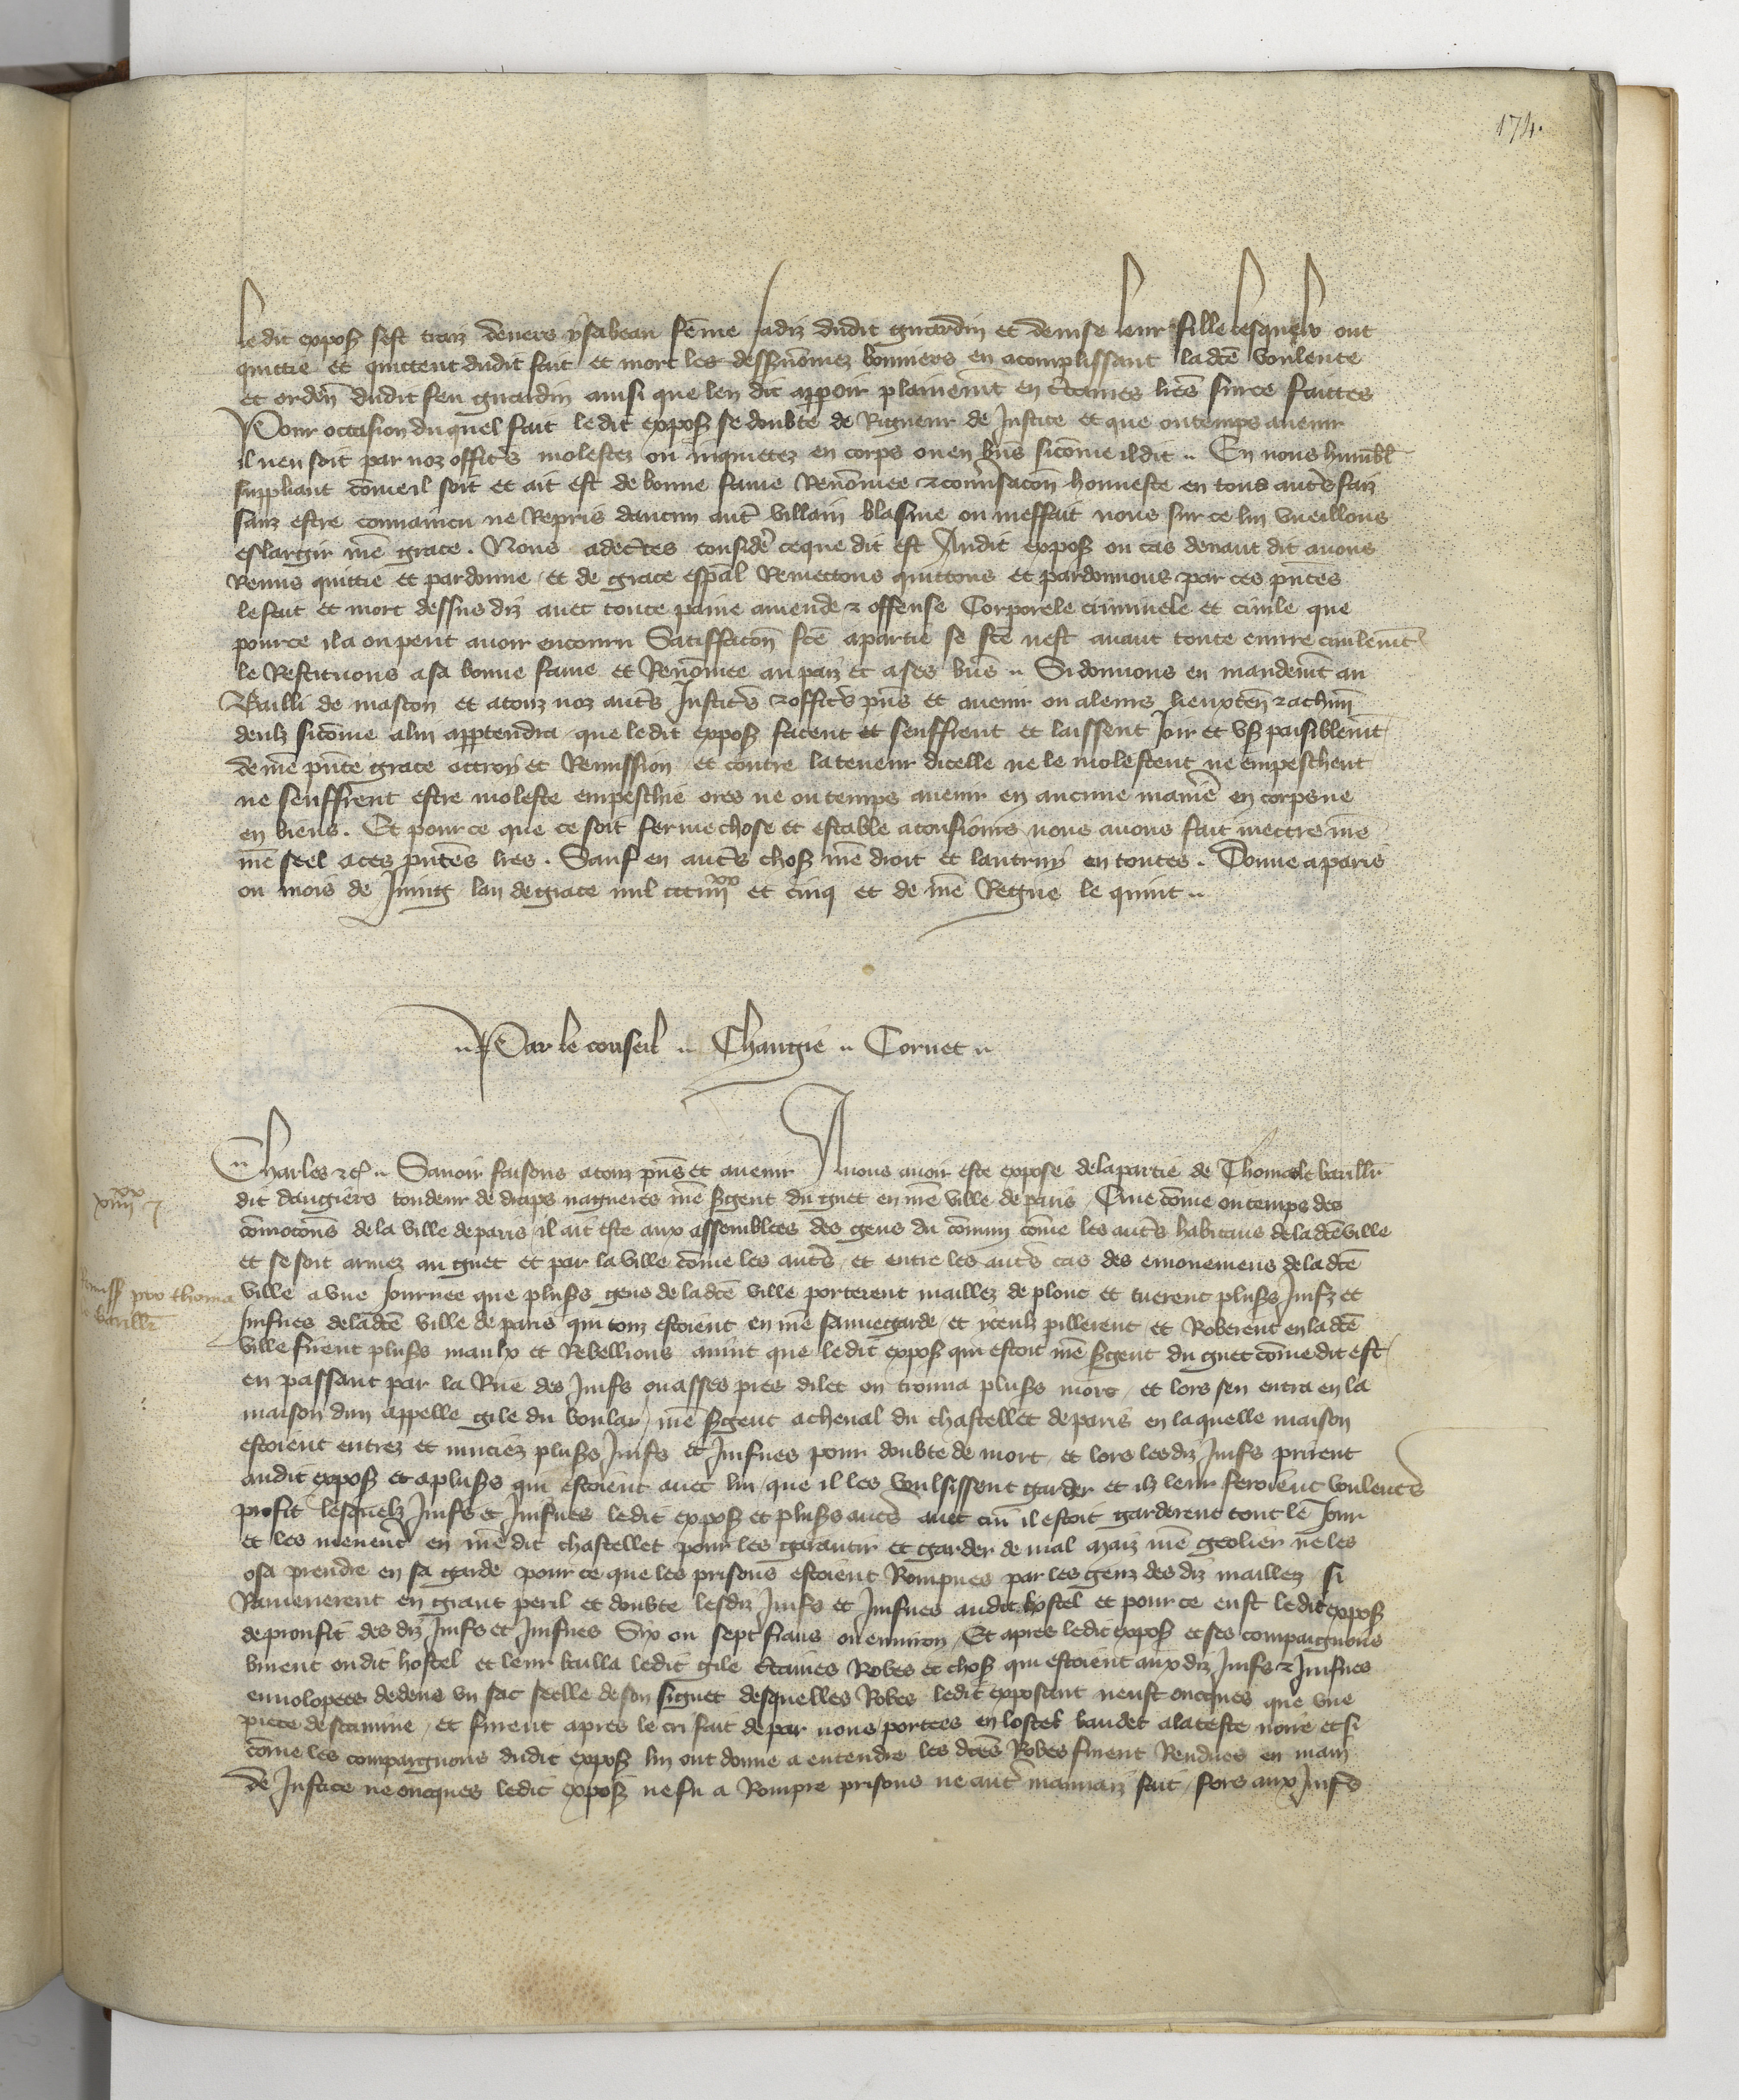 174.
ledit expos̃ sest traiz devers ysabeau fẽme jadiz dudit guiardin et denise leur fille lesquelx ont
quittie et quittent dudit fait et mort les dessusnõmez bonniers en acomplissant ladcẽ voulente
et orden̄ dudit feu guiardin ainsi que len dit apparoir plainem̃t en c̃taines lr̃es sur ce faittes
Pour occasion duquel fait ledit expos̃ se doubte de Rigueur de Justice et que ou temps avenir
il nen soit par noz offic̃s molestez ou inquietez en corps ou en bñs sicõme il dit .. En nous humbl̃
suppliant cõme il soit et ait est de bonne fame Renõmee & conṽsacõn honneste en tous aut̃s faiz
sanz estre convaincu ne Repris daucun aut̃ villain blasme ou meffait nous sur ce lui vueillons
eslargir nr̃e grace . Nous adec̃tes consider̃ ce que dit est Audit expos̃ ou cas devant dit avons
Remis quittie et pardonne et de grace esp̃al Remettons quittons et pardonnons par ces pñtes
le fait et mort dessus diz avec toute paine amende & offense Corporele criminele et civile que
pource il a ou peut avoir encouru Satiffacõn fcẽ a partie se fcẽ nest avant toute euvre civilem̃t
le Restituons a sa bonne fame et Renõmee au paiz et a ses bñs .. Si donnons en mandem̃t au
Bailli de mascon et a touz noz aut̃s Justic̃s & offic̃s pñs et avenir ou a leurs lieuxten̄ & a chũn
deulz sicõme a lui appartendra que ledit expos̃ facent et seuffrent et laissent Joir et us̃ paisiblem̃t
de nr̃e pñte grace ottroy et Remission et contre la teneur dicelle ne le molestent ne empeschent
ne seuffrent estre moleste empeschie ores ne ou temps avenir en aucune manier̃ en corps ne
en biens . Et pour ce que ce soit ferme chose et estable a tousjours nous avons fait mettre nr̃e
nr̃e seel a ces pñtes lr̃es . Sauf en aut̃s chos̃ nr̃e droit et lautruy en toutes . Donne a paris
ou mois de Juing lan de grace mil ccc iiii xx et cinq et de nr̃e Regne le quint ..
.. Par le conseil .. Changie .. Cornet ..
.. Charles &c̃ .. Savoir faisons a touz pñs et avenir A nous avoir este expose de la partie de Thomas le barillr̃
dit dangiers tondeur de draps nagueres nr̃e s̃gent du guet en nr̃e ville de paris Que cõme ou temps des
cõmocõns de la ville de paris il ait este aux assemblees des gens du cõmun cõme les aut̃s habitans de la dcẽ ville
et se soit armez au guet et par la ville cõme les aut̃s et entre les aut̃s cas des emouvemens de la dcẽ
ville a une Journee que plus̃s gens de la dcẽ ville porterent maillez de plonc et tuerent plus̃s Juifz et
Juifves de la dcẽ ville de paris qui touz estoient en nr̃e sauvegarde et yceulz pillerent et Roberent en la dcẽ
ville firent plus̃s maulx et Rebellions avint que ledit expos̃ qui estoit nr̃e s̃gent du guet cõme dit est
en passant par la Rue des Juifs ou asses pres dilec ou trouva plus̃s mors et lors sen entra en la
maison dun appelle gile du boulay nr̃e s̃gent a cheval du chastellet de paris en laquelle maison
estoient entrez et muciez plus̃s Juifs et Juifves pour doubte de mort et lors lesdiz Juifs prirent
audit expos̃ et a plus̃s qui estoient avec lui que il les voulsissent garder et ilz leur feroient voulent̃s
profit lesquelz Juifs et Juifves ledit expos̃ et plus̃s aut̃s avec cui il estoit garderent tout le Jour
et les menerẽt en nr̃e dit chastellet pour les garantir et garder de mal maiz nr̃e geolier ne les
osa prendre en sa garde pour ce que les prisons estoient Rompues par les genz des diz maillez si
Ramenerent en grant peril et doubte lesdiz Juifs et Juifves audit hostel et pour ce eust ledit expos̃
de proufit des diz Juifs et Juifves Six ou sept frans ou environ Et apres ledit expos̃ et ses compaignons
vinrent oudit hostel et leur bailla ledit gile c̃taines Robes et chos̃ qui estoient aux diz Juifs & Juifves
envolopees dedens un sac seelle de son signet desquelles Robes ledit exposant neust oncques que une
piece destamine et furent apres le cri fait de par nous portees en lostel baudet a la teste noire et si
cõme les compaignons dudit expos̃ lui ont donne a entendre les dcẽs Robes furent Rendues en main
de Justice ne oncques ledit expos̃ ne fu a Rompre prisons ne aut̃ mauvaiz fait fors aux Juifs
Remiss pro thoma
le barillr̃